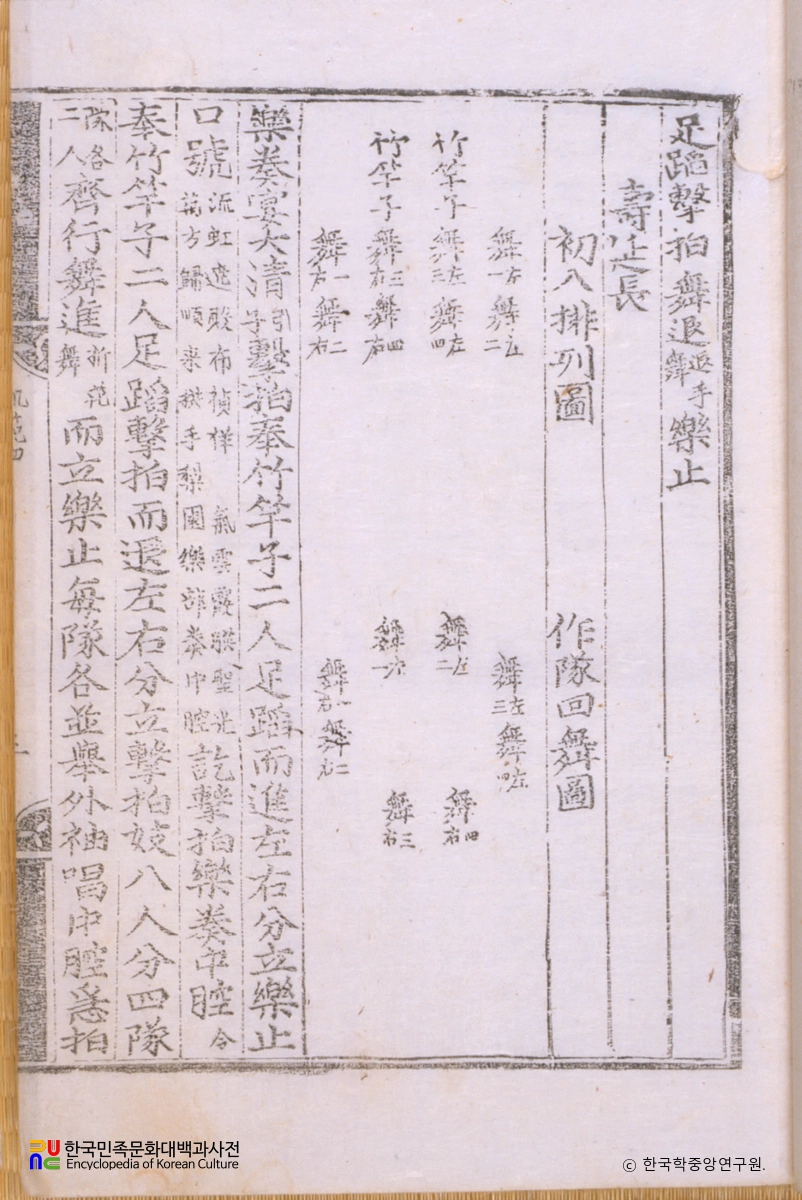 足蹈擊拍舞退退手舞樂止
壽延長
初入排列圖
作隊回舞圖
舞左一 舞左二
竹竿子 舞左三 舞左四
竹竿子 舞右三 舞右四
舞右一 舞右二
舞左三 舞左四
舞左二 舞右四
舞左一 舞右三
舞右一 舞右二
樂奏宴大清引子擊拍奉竹竿子二人足蹈而進左右分立樂止
口號流虹遶殿布禎祥 氣雲霞暎聖光萬方歸順來拱手梨園樂部奏中腔訖擊拍樂奏中腔令
奉竹竿子二人足蹈擊拍而退左右分立擊拍妓八人分四隊
隊各二人齊行舞進折花舞而立樂止每隊各並舉外袖唱中腔急拍
한국민족문화대백과사전
Encyclopedia of Korean Culture
ⓒ 한국학중앙연구원.